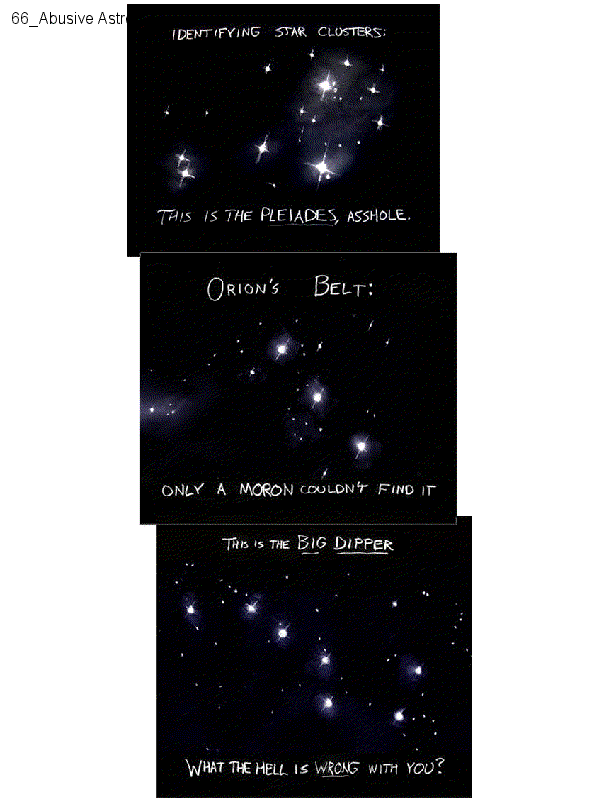 66_Abusive Astr
IDENTIFYING STAR CLUSTERS:
THIS IS THE PLEIADES, ASSHOLE.
ORION'S BELT:
ONLY A MORON COULDN'T FIND IT
THIS IS THE BIG DIPPER
WHAT THE HELL IS WRONG WITH YOU?